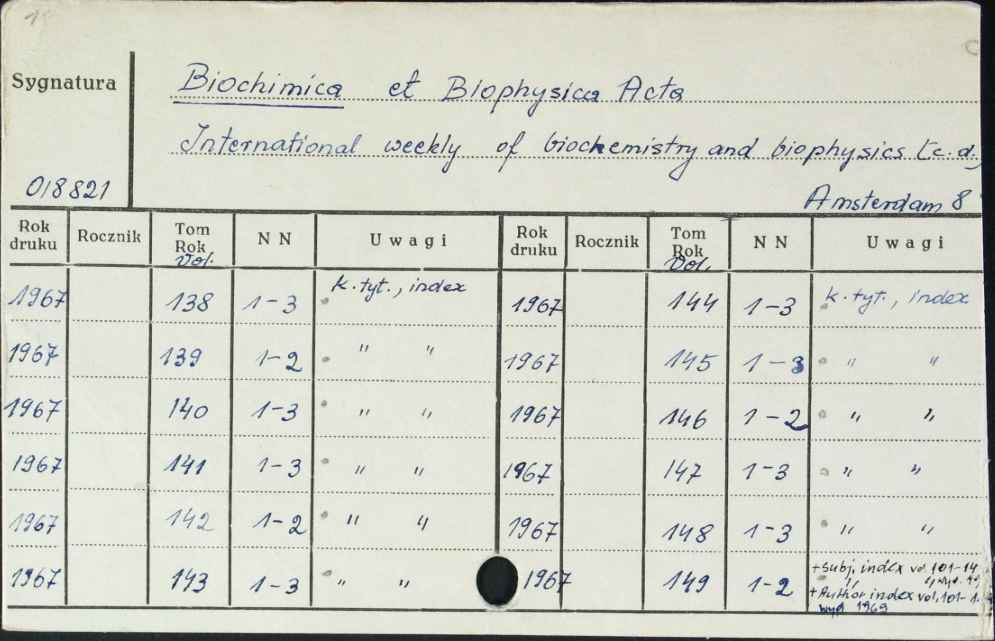 Sygnatura
Biochimica et Biophysica Acta
International weekly of biochemistry and biophysics [c.d.
018821
Amsterdam 8
Rok druku Rocznik Tom Rok Vol. NN Uwagi Rok druku Rocznik Tom Rok Vol. NN Uwagi
1967 138 1-3 k. tyt., index 1967 144 1-3 k. tyt., index
1967 139 1-2 " " 1967 145 1-3 " "
1967 140 1-3 " " 1967 146 1-2 " "
1967 141 1-3 " " 1967 147 1-3 " "
1967 142 1-2 " " 1967 148 1-3 " "
1967 143 1-3 " " 1967 149 1-2 + Subj. index vol. 101-14
+ Author index vol. 101-1
wyd 1969